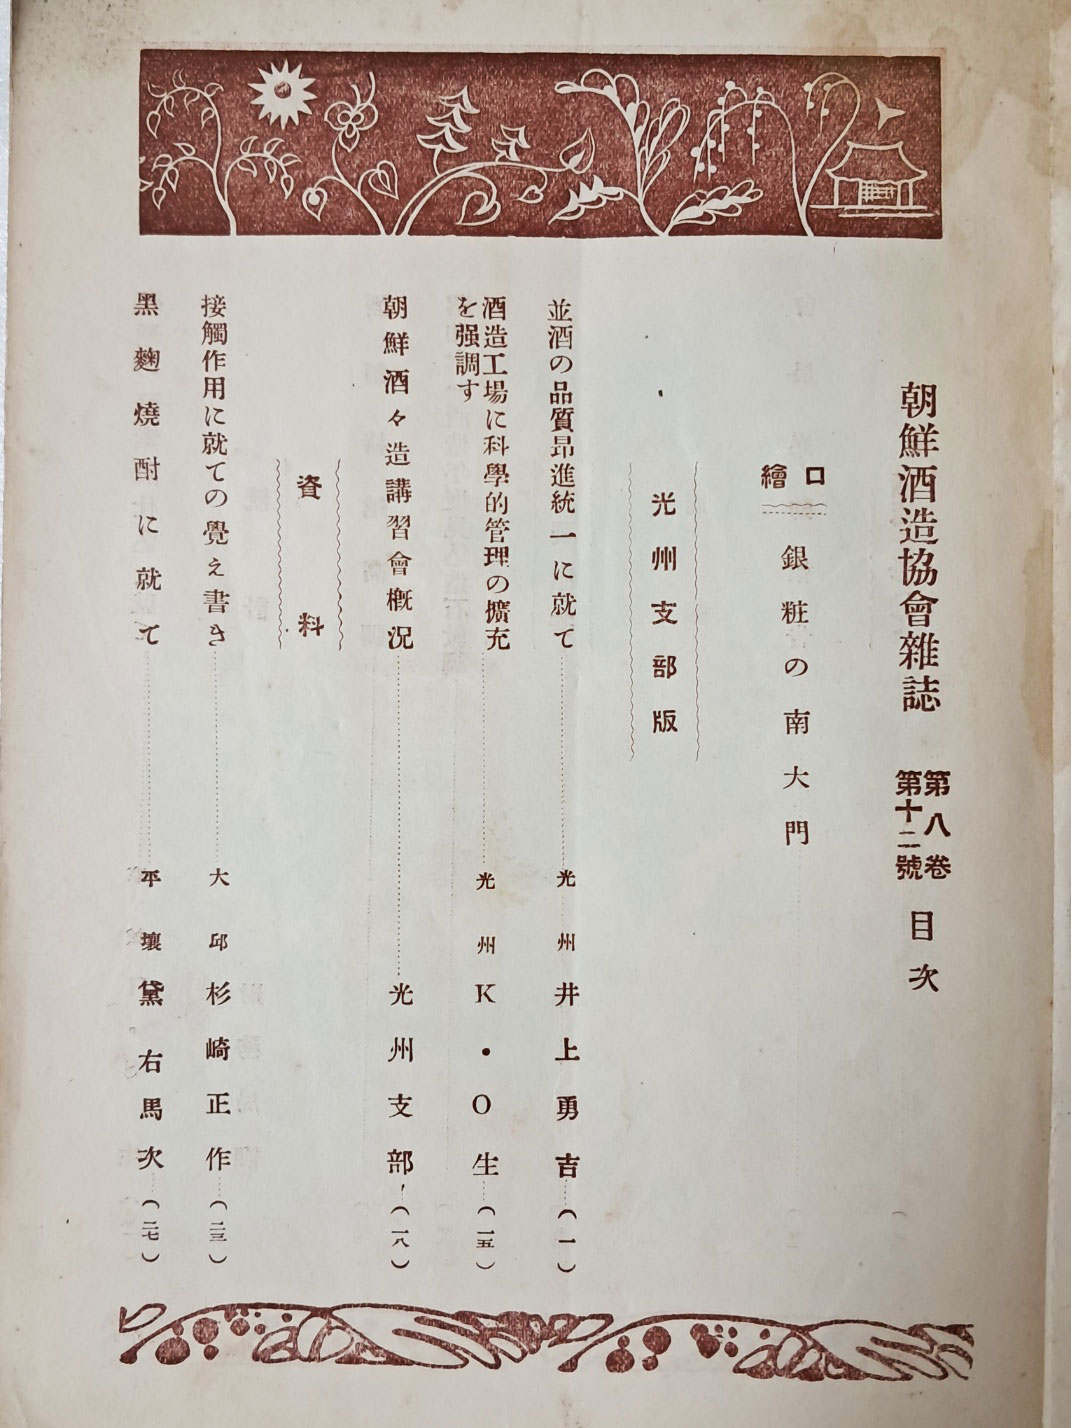 朝鮮酒造協會雜誌 第八卷 第十二號 目次
口繪 銀粧の南大門
光州支部版
並酒の品質昂進統一に就て 光州 井上勇吉 (一)
酒造工場に科學的管理の擴充
を强調す 光州 K・O生 (一五)
朝鮮酒々造講習會槪況 光州支部 (一八)
資料
接觸作用に就ての覺え書き 大邱 杉崎正作 (二三)
黑麴燒酎に就て 平壤 黛右馬次 (二七)